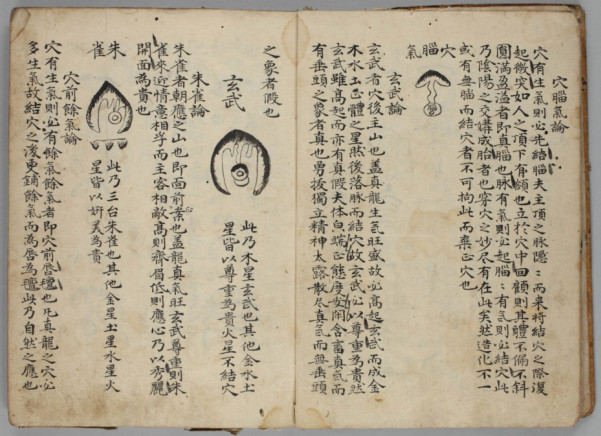 穴腦氣論
穴有生氣則必先結腦夫主項之脉隱：而来将結穴之際復
起微突如人之頂下有額也立於穴中回顧則其體不偏不斜
圓滿盈溢者即真腦也脉有氣則必起腦：有氣則必結穴此
乃陰陽之交媾成胎者也穽穴之妙尽有在此矣然造化不一
或有無腦而結穴者不可拘此而棄正穴也
穴
腦
氣
玄武論
玄武者穴後主山也盖真龍生氣旺盛故必高起玄武而成金
木水土正體之星然後落脉而結穴故玄武必以尊重為貴然
玄武雖高起而亦有真假夫体白端正態度安閑含畜真氣而
有垂頭之象者真也勇拔獨立精神太露散尽真氣而無垂頭
之象者假也
玄武
此乃木星玄武也其他金水土
星皆以尊重為貴火星不結穴
朱雀論
朱雀者朝應之山也即面前案也盖龍真氣旺玄武尊重則朱
雀来迎情意相孚而主客相敵高則齊眉低則應心乃以秀麗
開面為貴也
朱
雀
此乃三台朱雀也其他金星土星水星火
星皆以妍美為貴
穴前餘氣論
穴有生氣則必有餘氣餘氣者即穴前唇氊也凡真龍之穴必
多生氣故結穴之後更鋪餘氣而為唇為氊此乃自然之應也